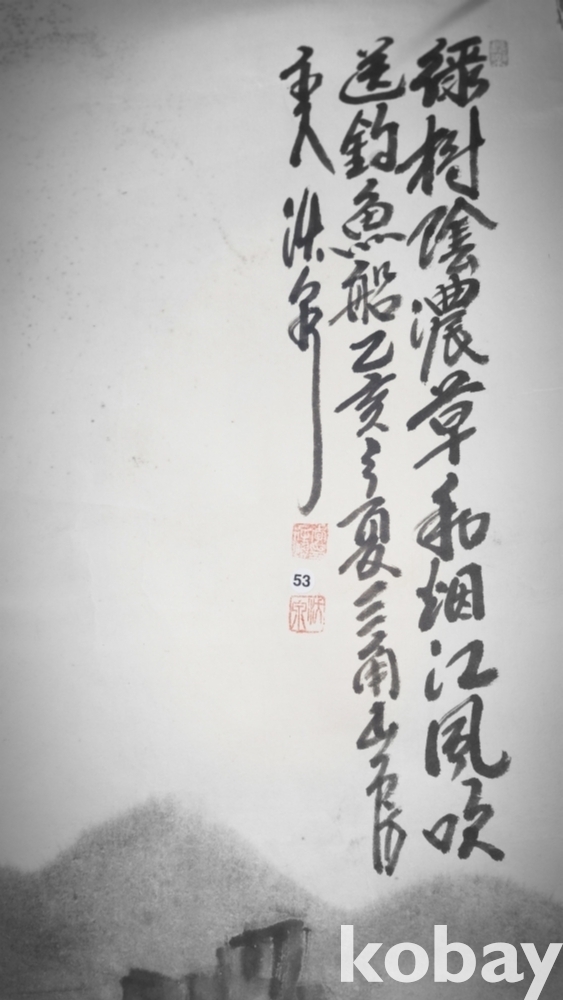 綠樹陰濃草和烟江風吹
送釣魚船乙亥之夏三角山房
主人 泉
53
kobay